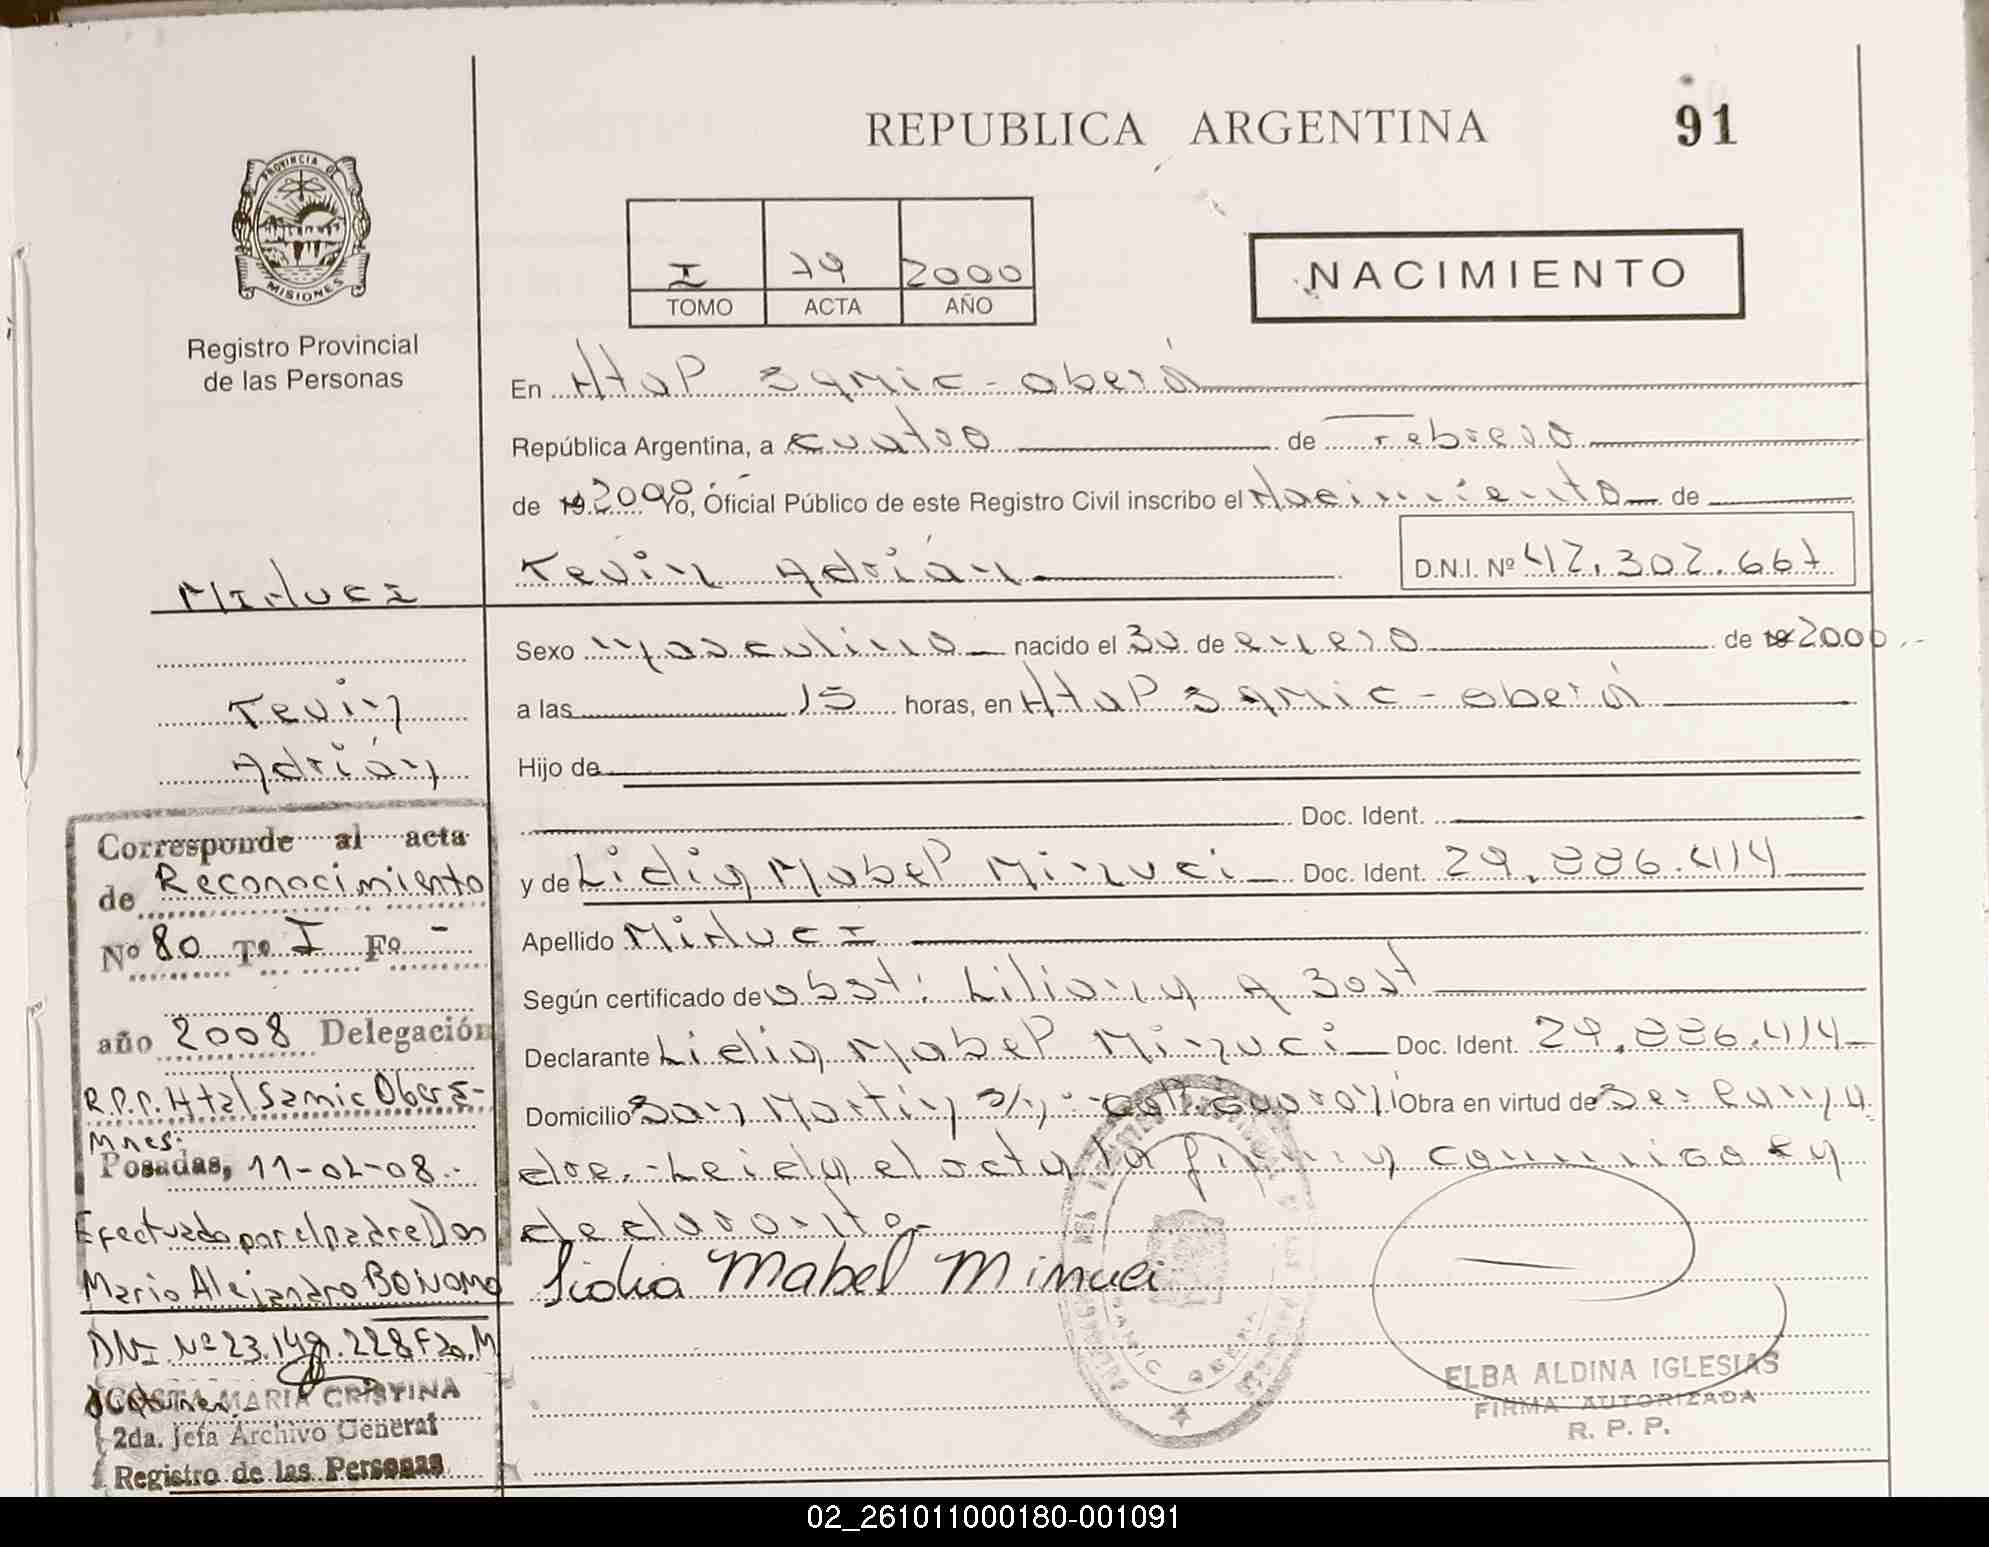 REPUBLICA ARGENTINA
91
PROVINCIA DE
MISIONES
Registro Provincial
de las Personas
I 79 2000
TOMO ACTA AÑO
NACIMIENTO
En Htal Samic - oberá
República Argentina, a cuatro de Febrero
de 19 2000 Yo, Oficial Público de este Registro Civil inscribo el Nacimiento de
Kevin Adrián D.N.I. Nº 42.302.667
Sexo masculino nacido el 30 de enero de 19 2000.-
a las 15 horas, en Htal Samic - oberá
Hijo de
Doc. Ident.
y de Lidia Mabel Minuci Doc. Ident. 29.886.414
Apellido MiNUCI
Según certificado de obst: Liliana A Bost
Declarante Lidia Mabel Minuci Doc. Ident. 29.886.414
Domicilio San Martín s/nº Obra en virtud de Ser la ma
dre.- Leida el acta la firma comigo la
declarante.
Lidia Mabel Minuci
ELBA ALDINA IGLESIAS
FIRMA AUTORIZADA
R. P. P.
MiNUCI
Kevin
Adrián
Corresponde al acta
de Reconocimiento
Nº 80 Tº I Fº -
año 2008 Delegación
R.P.P. Htal Samic Oberá-
Mnes.
Posadas, 11-02-08.-
Efectuado por el padre Don
Mario Alejandro BONOMO
DNI Nº 23.149.228 F20.M
ACOSTA MARIA CRISTINA
2da. Jefa Archivo General
Registro de las Personas
02_261011000180-001091